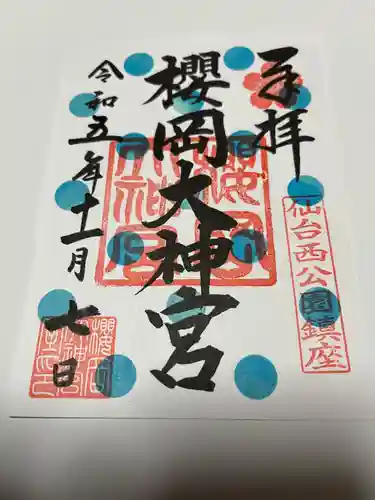 奉拝
仙台西公園鎮座
櫻岡大神宮
令和五年十一月
七日